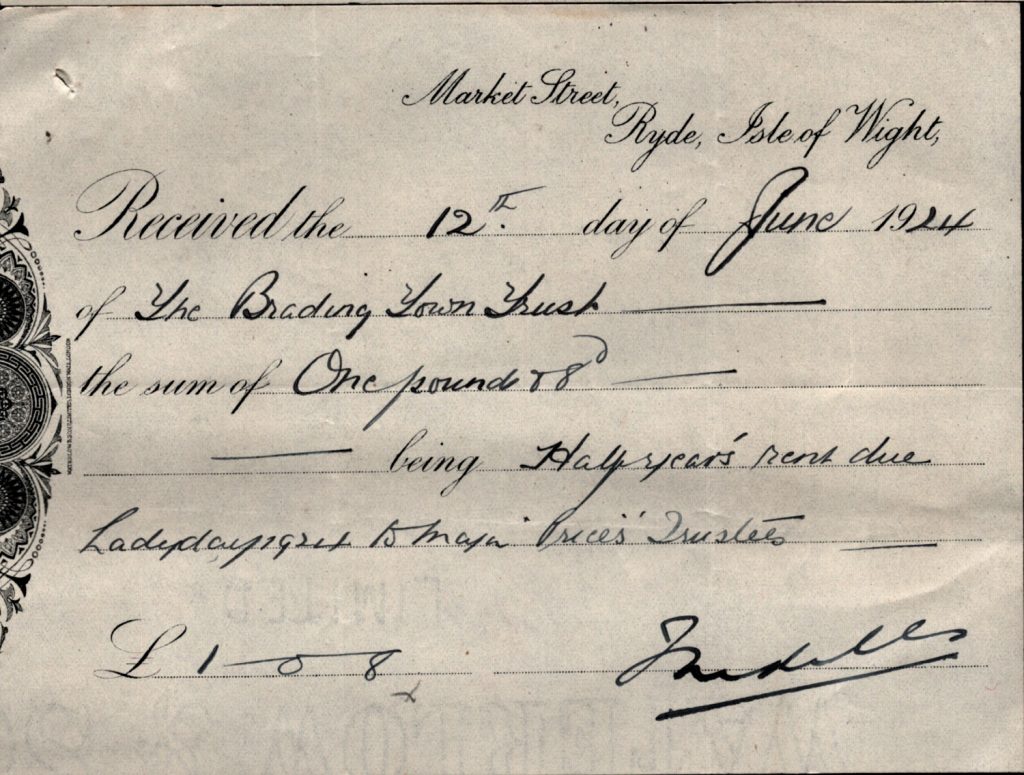 Market Street,
Ryde, Isle of Wight,
Received the 12th. day of June 1924
of The Brading Town Trust
the sum of One pound & 8d
being Half year's rent due
Ladyday 1924 to Major Price's Trustees
£ 1 - 0 - 8
LIMITED